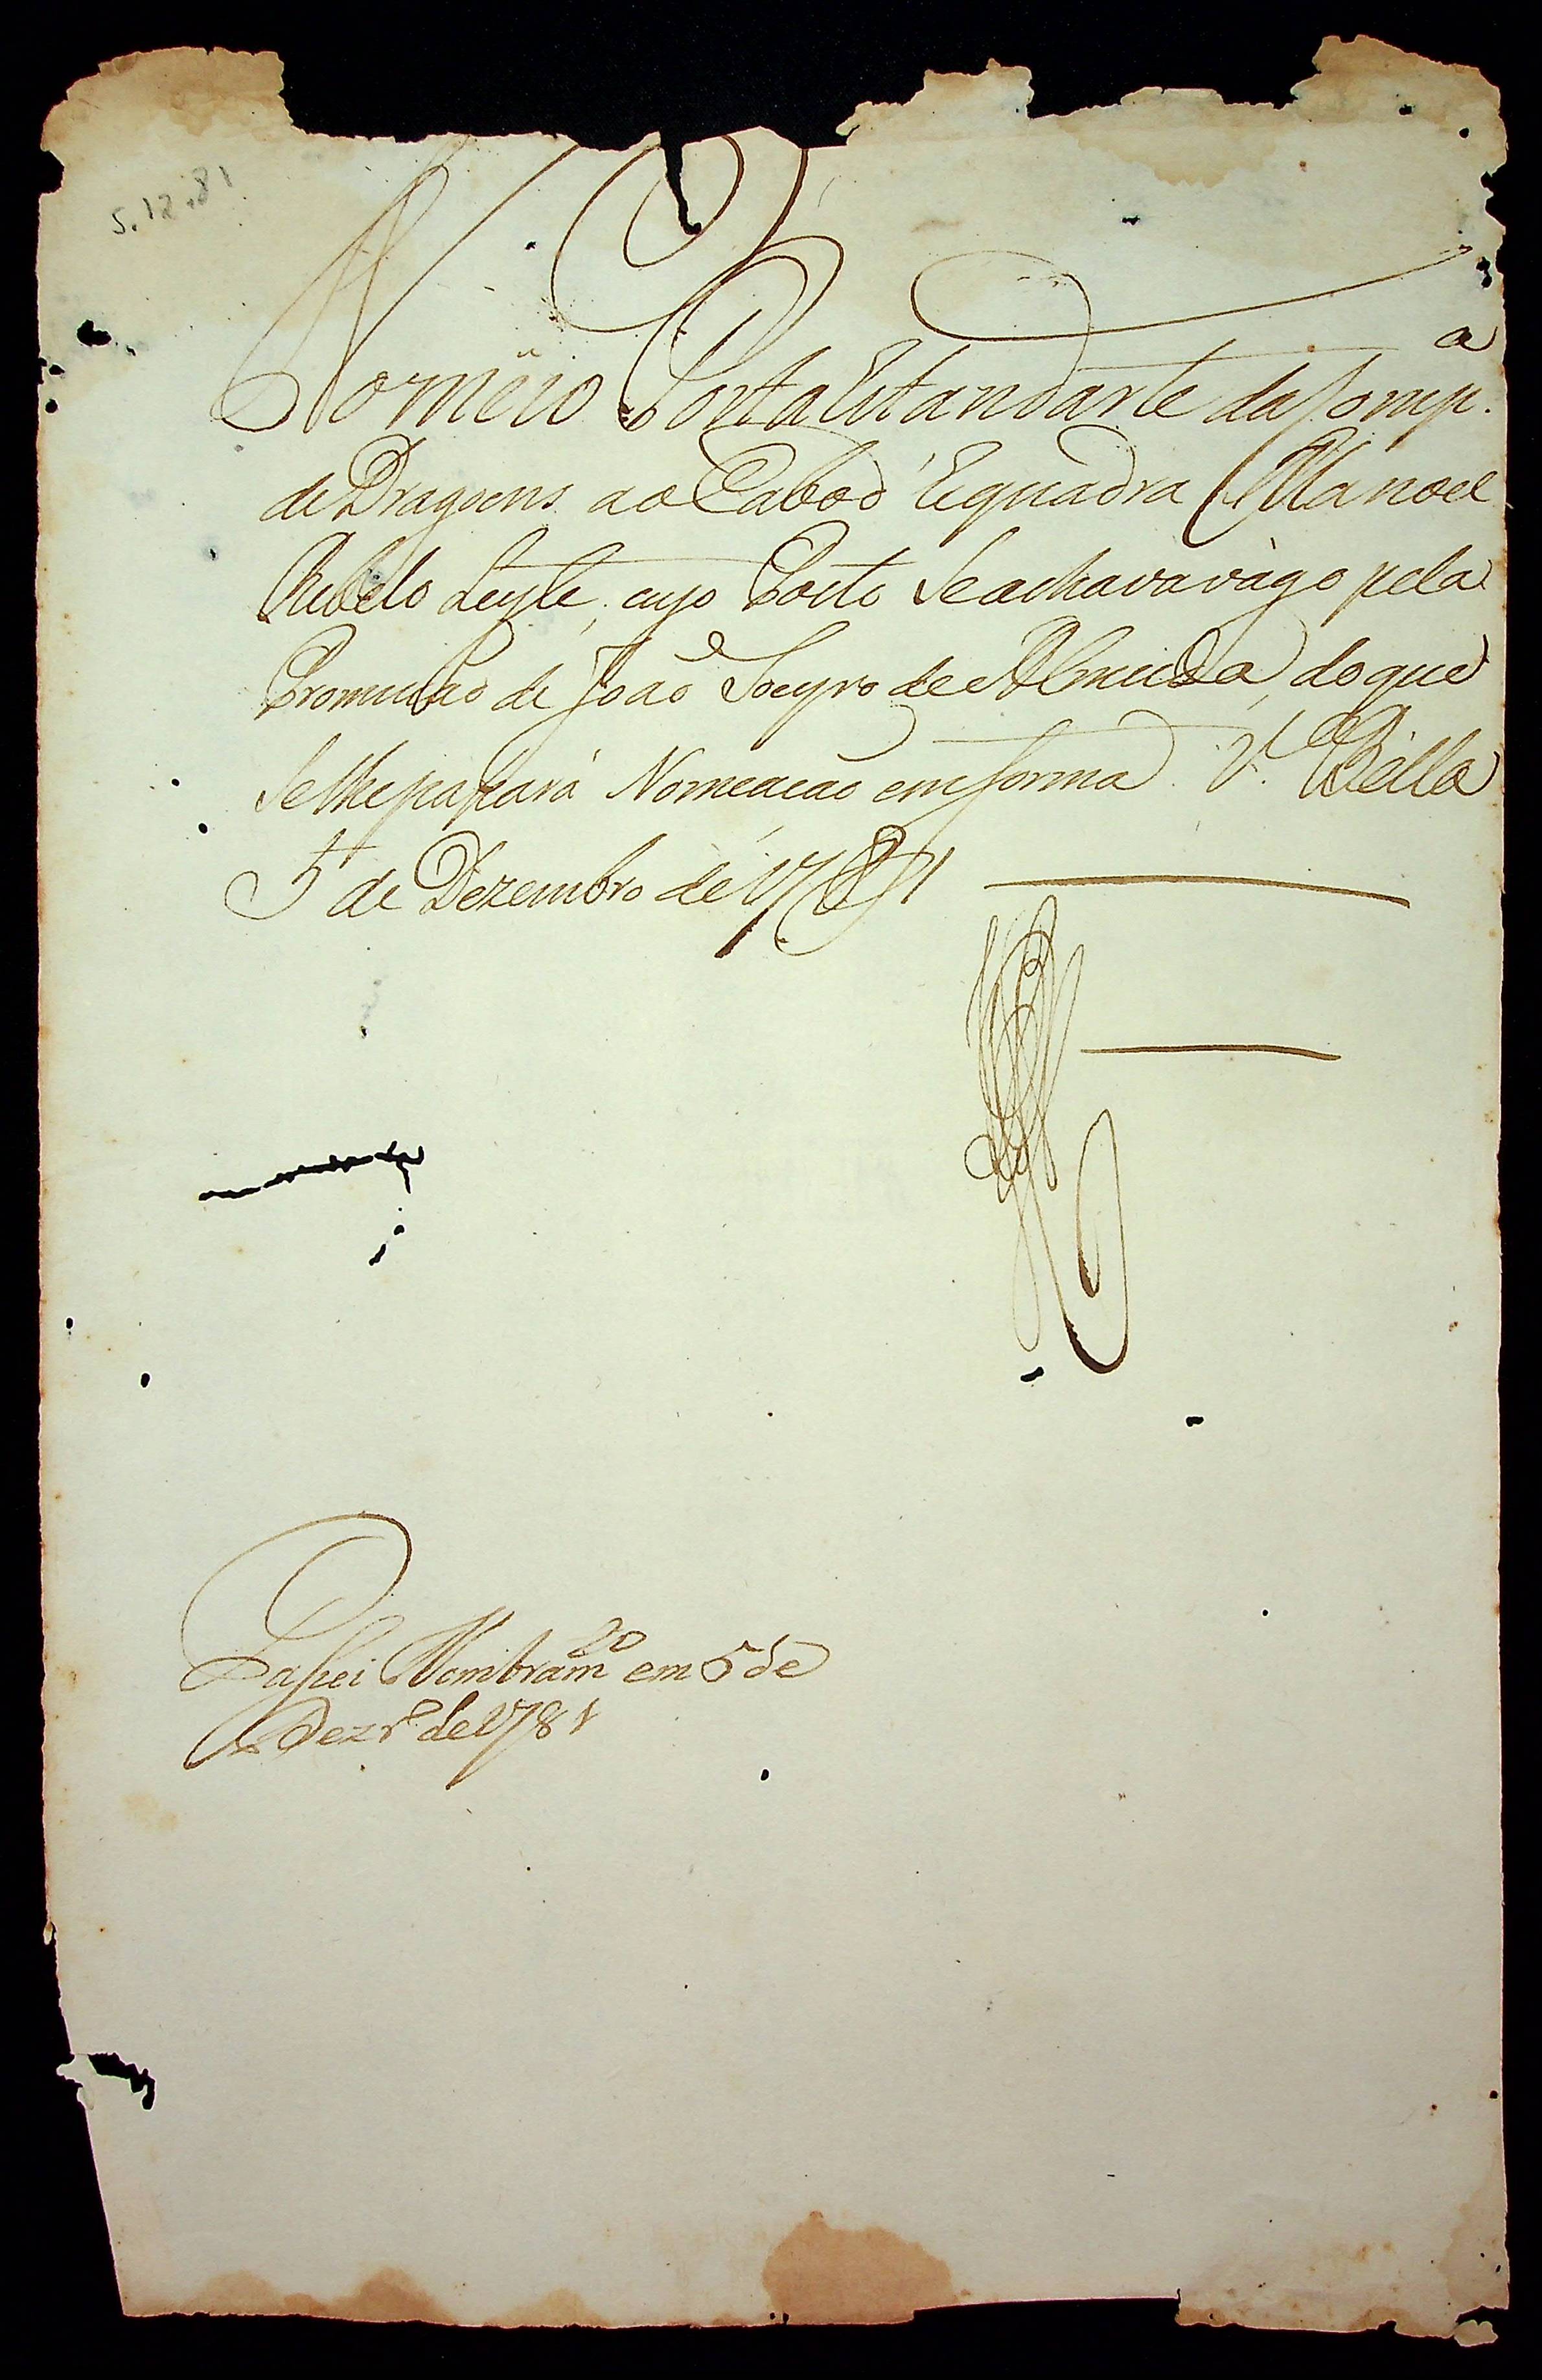 5.12.81
Nomeio Porta Estandarte da Comp.ª
de Dragoens ao Cabo d'Esquadra Manoel
Rebelo Leyte, cujo Posto se achava vágo pela
Promução de João Soeyro de Almeida, do que
se lhe passará Nomeacao em forma. V.ª Bella
5 de Dezembro de 1781
Passei Nombram.to em 5 de
Dezr.º de 1781